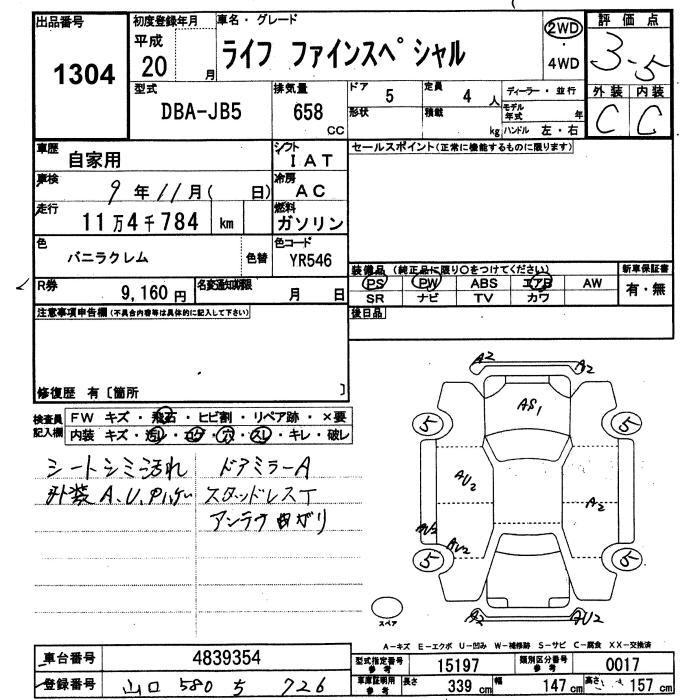 出品番号
1304
初度登録年月
平成
20 月
車名・グレード
ライフ ファインスペシャル
2WD
・
4WD
評価点
3.5
外装 内装
C C
型式
DBA-JB5
排気量
658
CC
ドア
5
定員
4 人
形状
積載
kg
ディーラー・並行
モデル
年式 年
ハンドル 左・右
車歴
自家用
シフト
IAT
車検
9 年 11 月( 日)
冷房
AC
走行
11万4千784 km
燃料
ガソリン
色
バニラクレム
色替
色コード
YR546
R券
9,160 円
名変通知期限
月 日
セールスポイント(正常に機能するものに限ります)
装備品(純正品に限り○をつけてください)
PS PW ABS エアB AW
SR ナビ TV カワ
新車保証書
有・無
後日品
注意事項申告欄(不具合内容等は具体的に記入して下さい)
修復歴 有〔箇所 〕
検査員
記入欄
FW キズ・飛石・ヒビ割・リペア跡・×要
内装 キズ・汚レ・コゲ・穴・スレ・キレ・破レ
シートシミ汚れ
外装 A.U.
ドアミラーA
スタッドレスT
アンテナ曲がり
A2
A2
AS1
5
5
AU2
A2
AU2
AU2
5
5
A2
AU2
スペア
A-キズ E-エクボ U-凹み W-補修跡 S-サビ C-腐食 XX-交換済
車台番号
4839354
登録番号
山口 580 ち 726
型式指定番号
参考
15197
類別区分番号
参考
0017
車庫証明用
参考
長さ
339 cm
幅
147 cm
高さ
157 cm